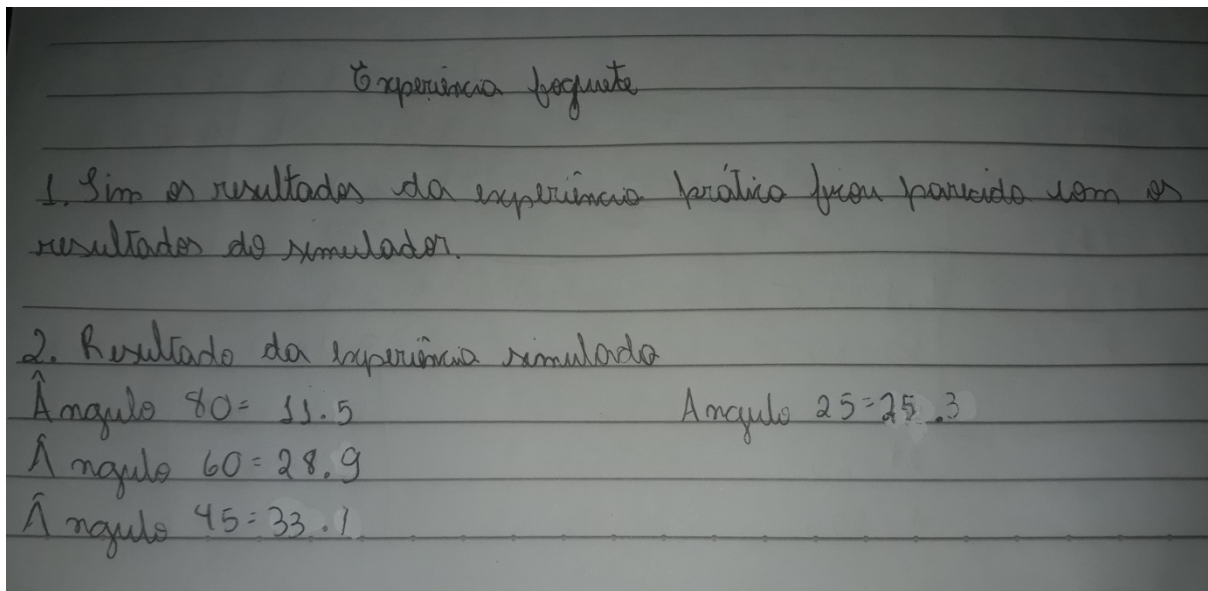 Experiência foguete
1. Sim os resultados da experiência prática ficou parecido com os
resultados do simulador.
2. Resultado da experiência simulada
Ângulo 80= 11.5
Angulo 25=25.3
Ângulo 60=28.9
Ângulo 45=33.1